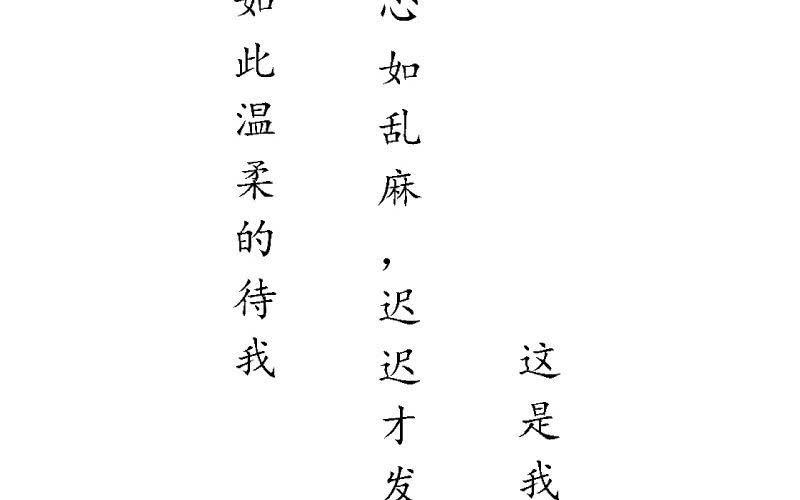 这是我
心如乱麻，迟迟才发
如此温柔的待我